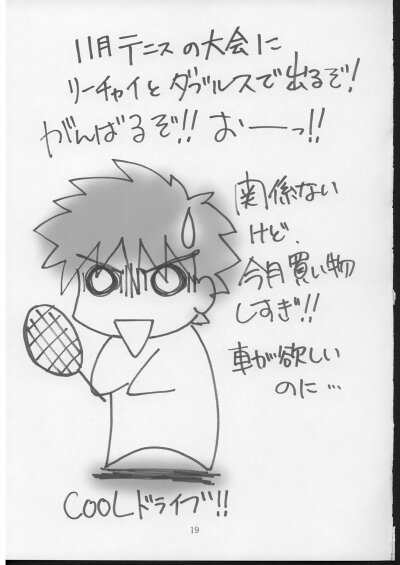 11月テニスの大会に
リーチャイとダブルスで出るぞ!
がんばるぞ!! おーっ!!
関係ない
けど、
今月買い物
しすぎ!!
車が欲しい
のに…
COOLドライブ!!
19